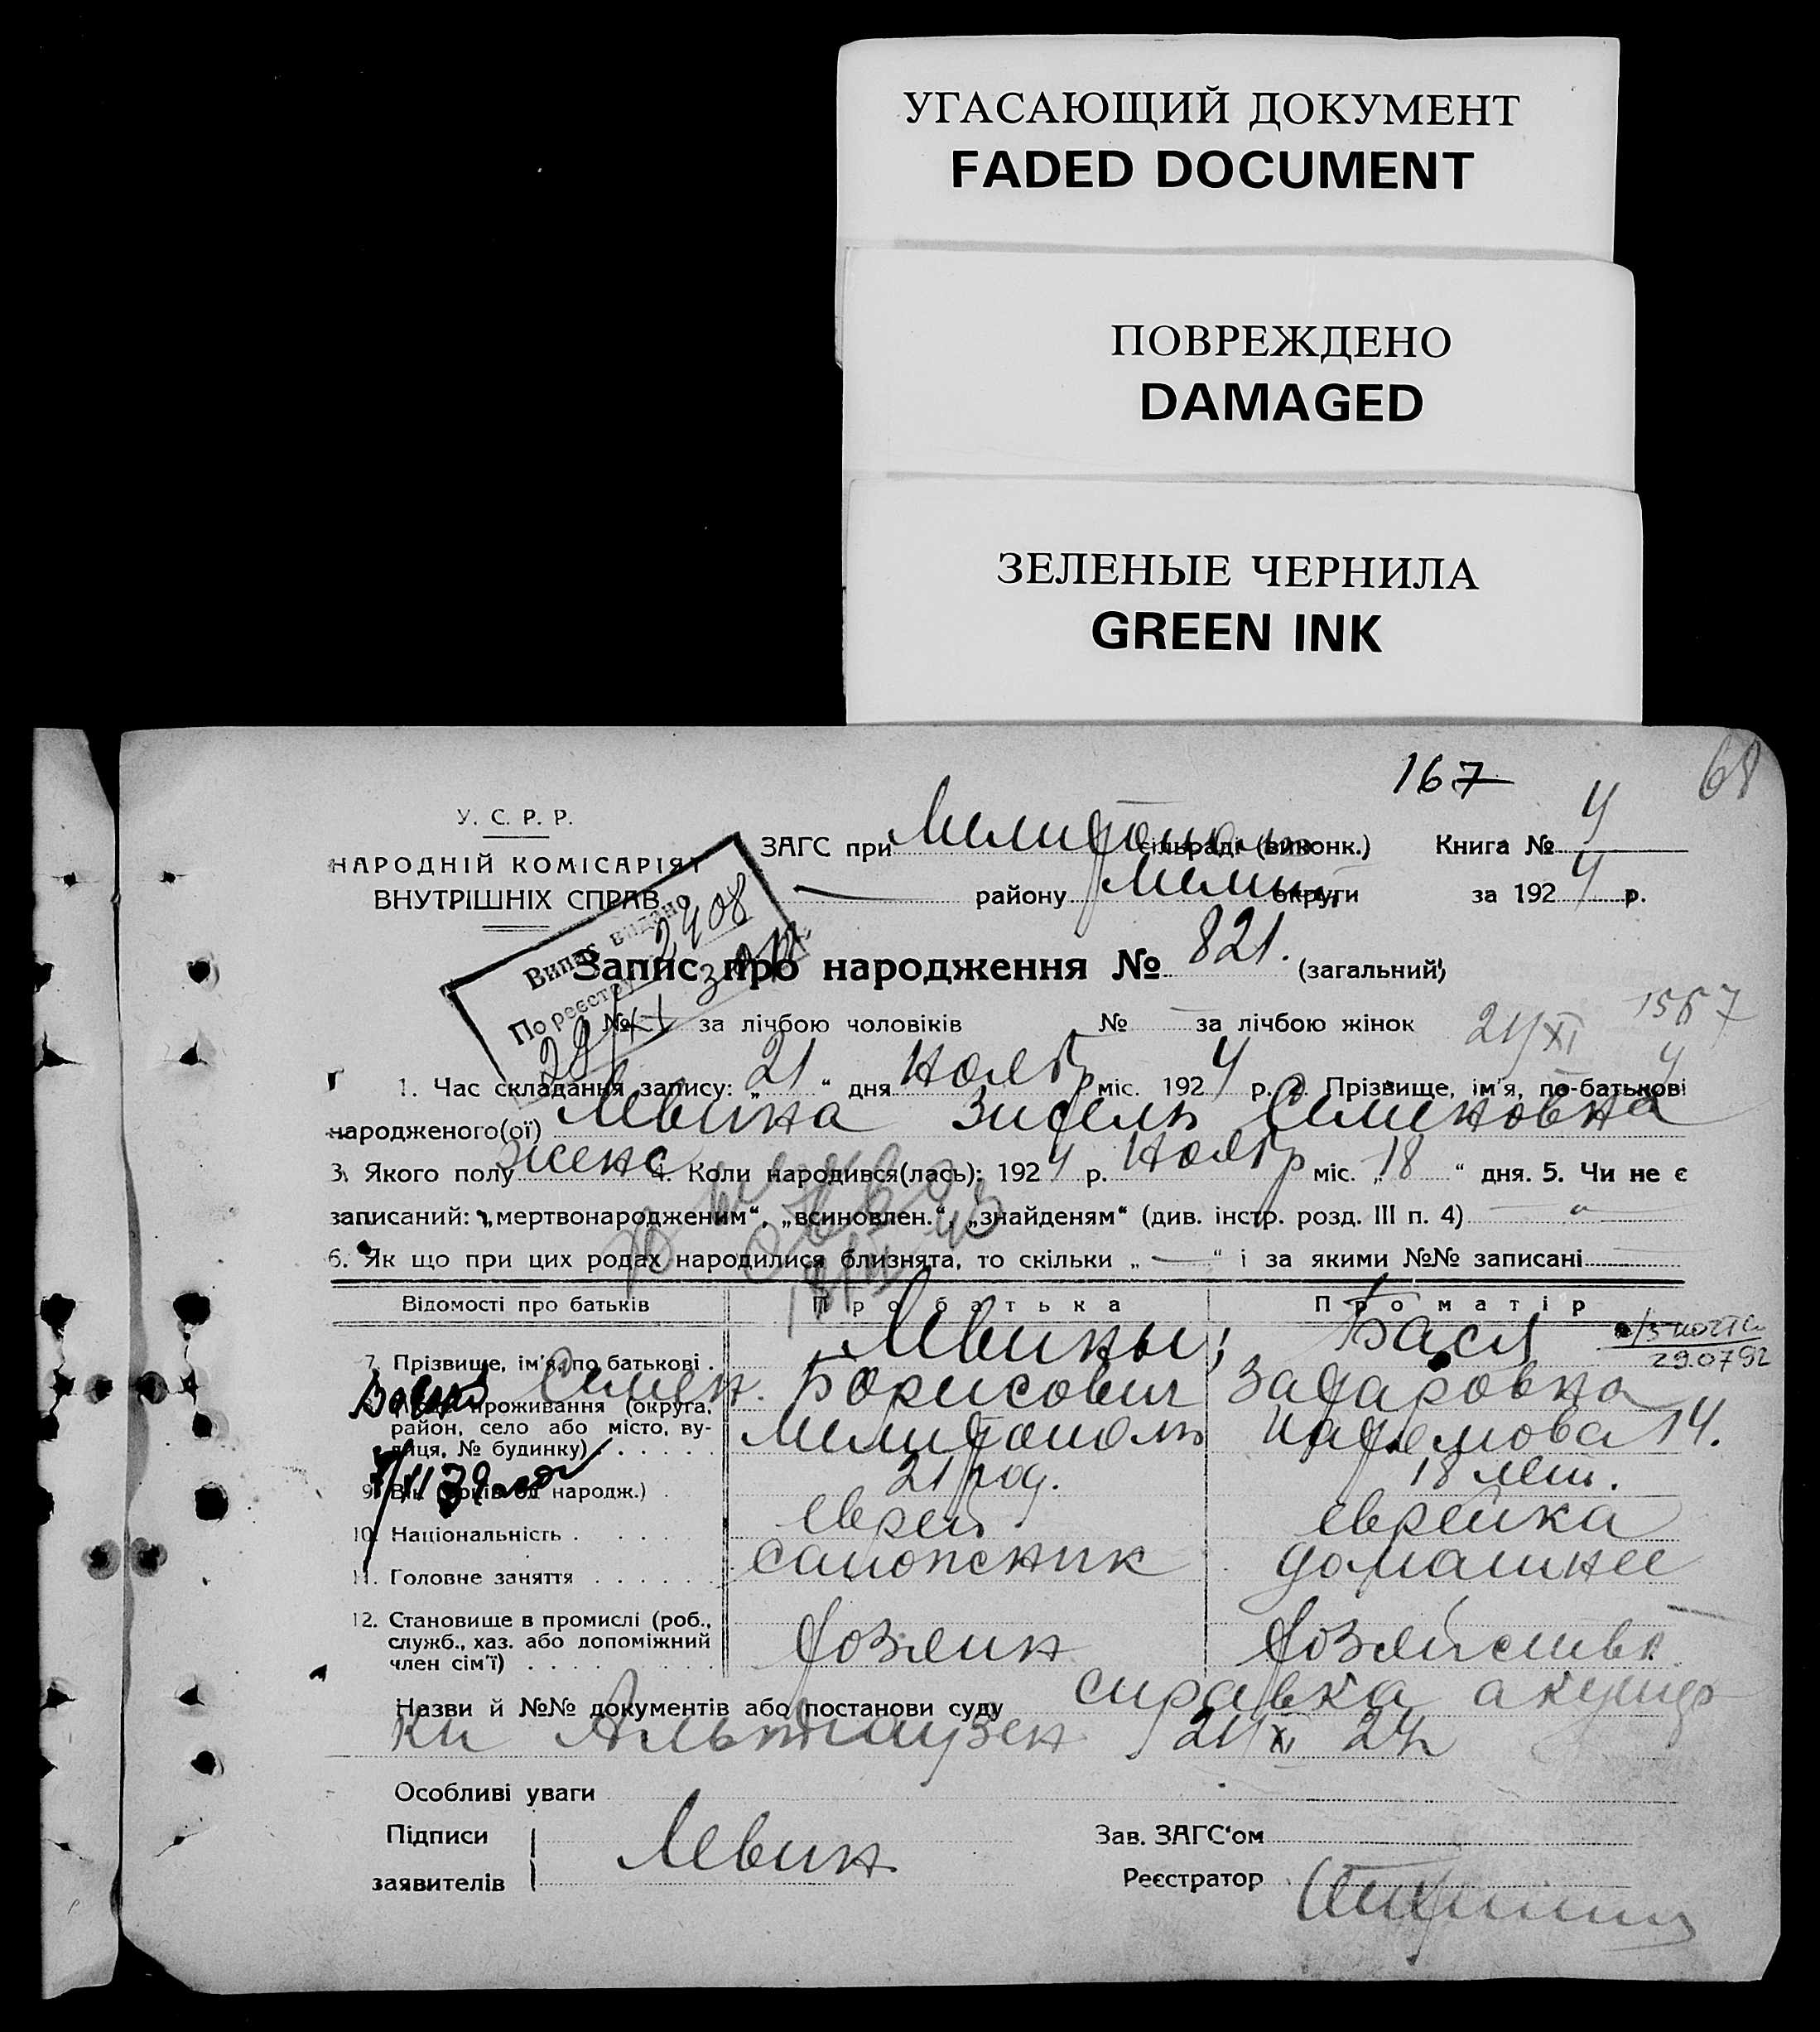 УГАСАЮЩИЙ ДОКУМЕНТ
FADED DOCUMENT
ПОВРЕЖДЕНО
DAMAGED
ЗЕЛЕНЫЕ ЧЕРНИЛА
GREEN INK
167
68
У. С. Р. Р.
НАРОДНІЙ КОМІСАРІЯТ
ВНУТРІШНІХ СПРАВ
ЗАГС при Мелитополь сільраді (виконк.) Книга № 4
району Мелит. округи за 1924 р.
Випис видано
По реєстру 2408
Запис про народження № 821. (загальний)
№ за лічбою чоловіків № за лічбою жінок 21/XI 1557
1. Час складання запису: „21“ дня Ноябр міс. 1924 р. 2. Прізвище, ім'я, по-батькові
народженого(ої) Левина Зисель Семеновна
3. Якого полу женс 4. Коли народився(лась): 1924 р. Ноябр міс. „18“ дня. 5. Чи не є
записаний: „мертвонародженим“, „всиновлен.“, „знайденям“ (див. інстр. розд. III п. 4) „
6. Як що при цих родах народилися близнята, то скільки „—“ і за якими №№ записані
Відомості про батьків Про батька Про матір
7. Прізвище, ім'я, по батькові . Левины; Бася
29.07.92
Семен. Борисович Захаровна
проживання (округа, район, село або місто, вулиця, № будинку) . . . . . Мелитополь 14.
9. Вік народж.) . 21 год. 18 лет.
10. Національність . . . . еврей еврейка
11. Головне заняття . . . . . . сапожник домашнее
12. Становище в промислі (роб.,
служб., хаз. або допоміжний Хозяин Хозяйство
член сім'ї) . . . . . . . . .
Назви й №№ документів або постанови суду справка акушер
ки Альтгаузен 21/XI 24
Особливі уваги
Підписи Левин Зав. ЗАГС'ом
заявителів Реєстратор